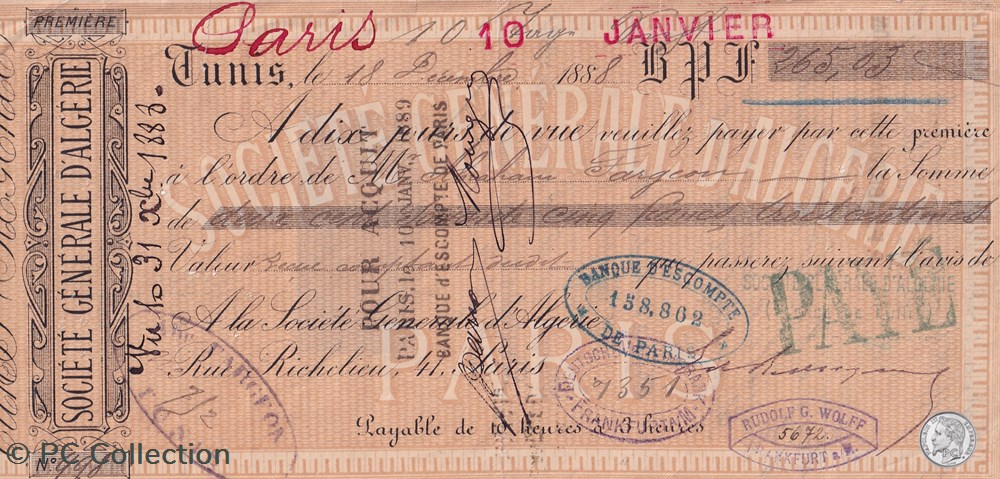 PREMIÈRE
Paris
10 JANVIER
Tunis, le 18 Décembre 1888 BPF 265,03
A dix jours de vue veuillez payer par cette première
à l'ordre de Mr Abraham Fargeon la Somme
de deux cent soixante cinq francs, trois centimes
Valeur que passerez suivant l'avis de
A la Société Générale d'Algérie
Rue Richelieu, 41, Paris
Payable de 10 heures à 3 heures
SOCIÉTÉ GÉNÉRALE D'ALGÉRIE
SOCIÉTÉ GÉNÉRALE D'ALGÉRIE
PARIS
Vu le 31 Xbre 1888
POUR ACQUIT
PARIS. 10 JANV. 1889
BANQUE D'ESCOMPTE DE PARIS
BANQUE D'ESCOMPTE
158.862
DE PARIS
PAYÉ
SOCIÉTÉ GÉNÉRALE D'ALGÉRIE
7351
FRANKFURT A/M
RUDOLF G. WOLFF
5672
FRANKFURT a/M.
No
PC
© PC Collection